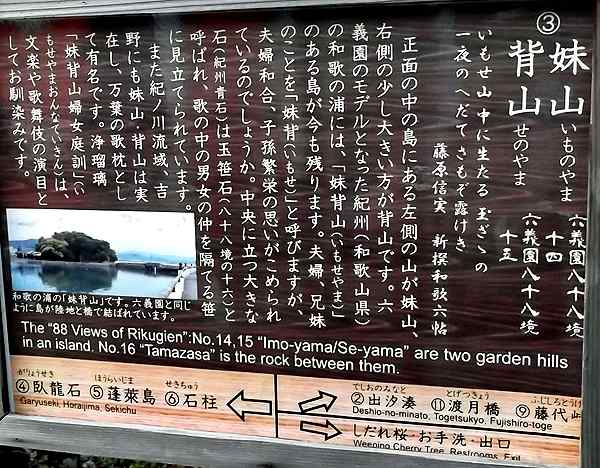 ③
妹山 いものやま 六義園八十八境 十四
背山 せのやま 六義園八十八境 十五
いもせ山 中に生たる玉ざゝの
一夜のへだてさもぞ露けき
藤原信実 新撰和歌六帖
正面の中の島にある左側の山が妹山、
右側の少し大きい方が背山です。六
義園のモデルとなった紀州(和歌山県)
の和歌の浦には、「妹背山(いもせやま)」
のある島が今も残ります。夫婦、兄妹
のことを「妹背(いもせ)」と呼びますが、
夫婦和合、子孫繁栄の思いがこめられ
ているのでしょうか。中央に立つ大きな
石(紀州青石)は玉笹石(八十八境の十六)と
呼ばれ、歌の中の男女の仲を隔てる笹
に見立てられています。
また紀ノ川流域、吉
野にも妹山・背山は実
在し、万葉の歌枕とし
て有名です。浄瑠璃
「妹背山婦女庭訓」(い
もせやまおんなていきん)は、
文楽や歌舞伎の演目と
してお馴染みです。
和歌の浦の「妹背山」です。六義園と同じ
ように島が陸地と橋で結ばれています。
The “88 Views of Rikugien”:No.14,15 “Imo-yama/Se-yama” are two garden hills
in an island. No.16 “Tamazasa” is the rock between them.
がりょうせき ほうらいじま せきちゅう
④臥龍石 ⑤蓬莱島 ⑥石柱
Garyuseki, Horaijima, Sekichu
でしおのみなと とげつきょう ふじしろとうげ
②出汐湊 ⑪渡月橋 ⑨藤代峠
Deshio-no-minato, Togetsukyo, Fujishiro-toge
しだれ桜・お手洗・出口
Weeping Cherry Tree, Restrooms, Exit